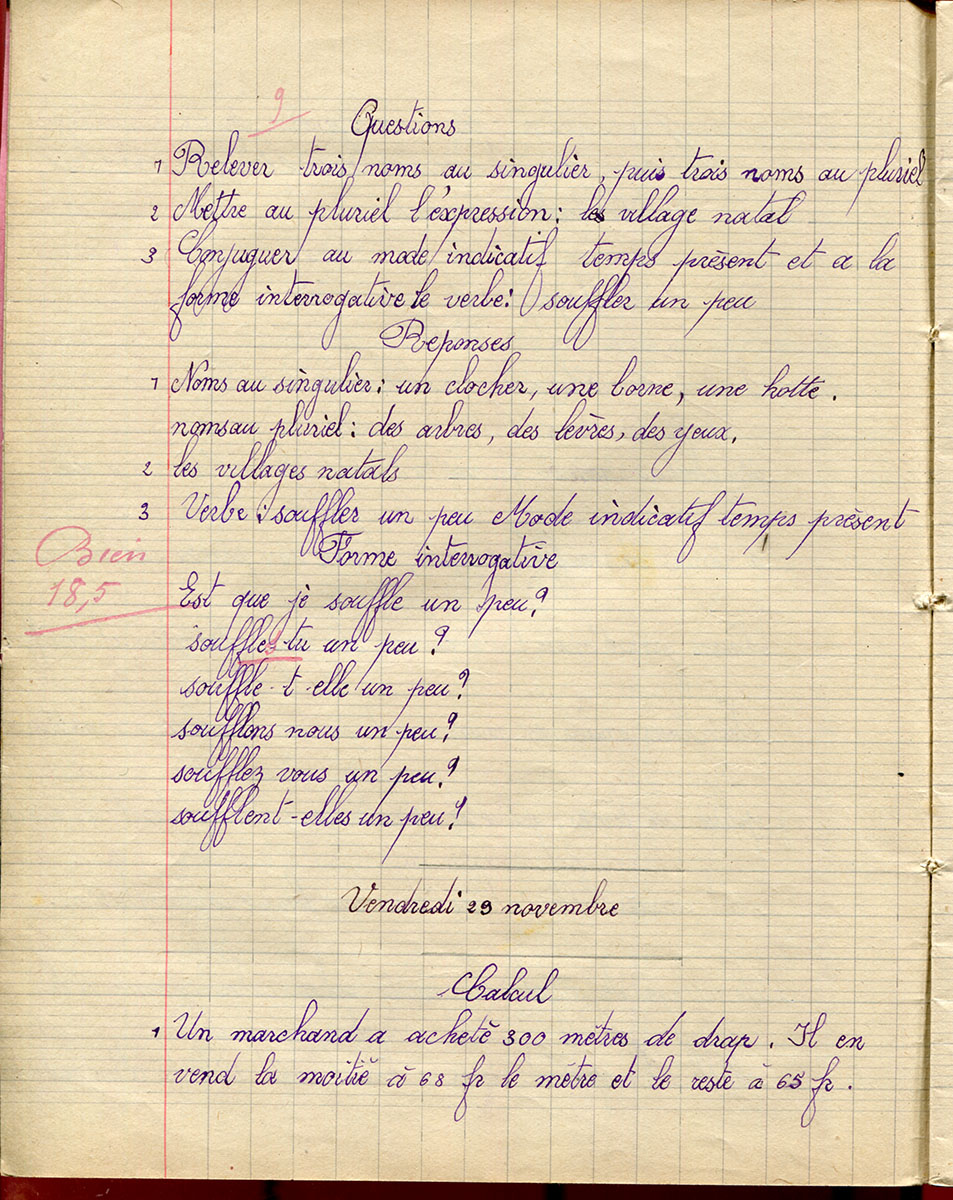 9
Questions
1 Relever trois noms au singulier, puis trois noms au pluriel
2 Mettre au pluriel l'éxpression: le village natal
3 Conjuguer au mode indicatif temps présent et a la
forme interrogative le verbe: souffler un peu
Reponses
1 Noms au singulier: un clocher, une borne, une hotte.
noms au pluriel: des arbres, des lèvres, des yeux.
2 les villages natals
3 Verbe: souffler un peu Mode indicatif temps présent
Forme interrogative
Bien
18,5
Est que je souffle un peu?
souffles-tu un peu?
souffle-t-elle un peu?
soufflons nous un peu?
soufflez vous un peu?
soufflent-elles un peu?
Vendredi 29 novembre
Calcul
1 Un marchand a acheté 300 mètres de drap. Il en
vend la moitié à 68 fr le mètre et le reste à 65 fr.